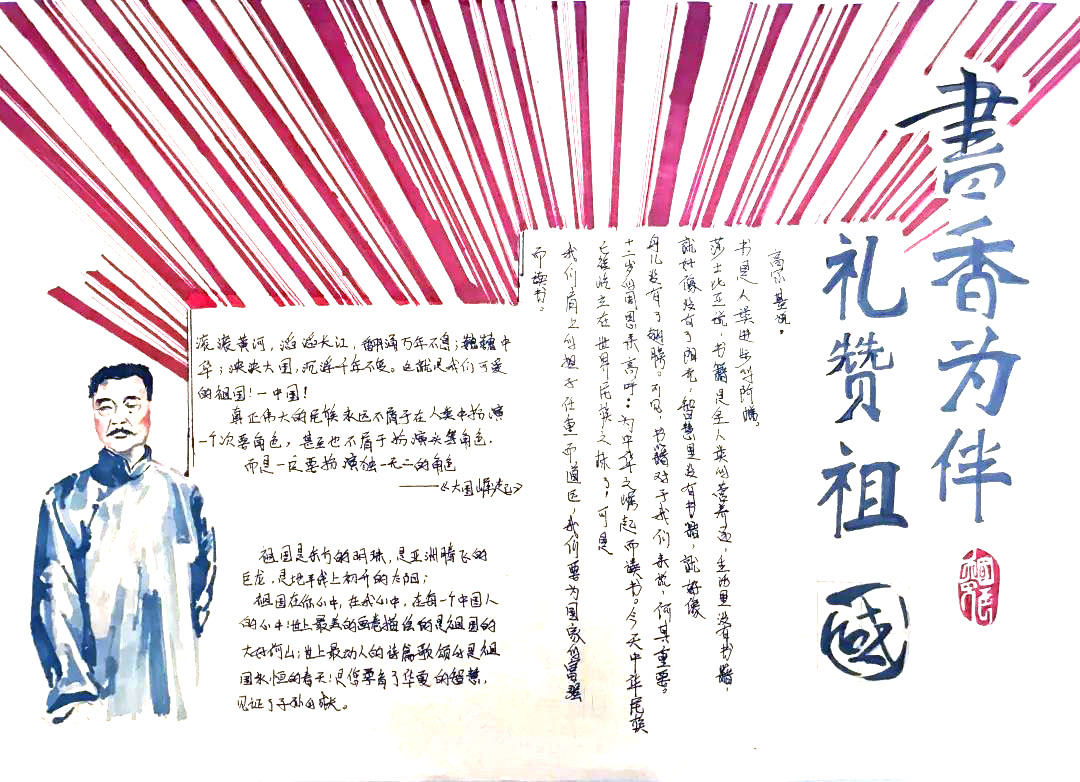 書香为伴
礼赞祖
國
高尔基说。
书是人类进步的阶梯。
莎士比亚说,书籍是全人类的营养还,生活里没有书籍,
就好像没有了阳光,智慧里没有书籍,就好像
鸟儿没有了翅膀。可见,书籍对于我们来说,何其重要。
十二岁的周恩来高呼:为中华之崛起而读书。今天中华民族
已经屹立在世界民族之林了,可是
我们肩上的担子任重而道远,我们要为国家的富强
而读书。
滚滚黄河,滔滔长江,翻涌万年不息;巍巍中
华;泱泱大国,沉浮千年不变。这就是我们可爱
的祖国!一中国!
真正伟大的民族永远不屑于在人类中扮演
一个次要角色,甚至也不屑于扮演头等角色.
而是一定要扮演独一无二的角色
——《大国崛起》
祖国是东方的明珠,是亚洲腾飞的
巨龙,是地平线上初升的太阳;
祖国在你心中,在我心中,在每一个中国人
的心中!世上最美的画卷描绘的是祖国的
大好何山;世上最动人的诗篇歌颂的是祖
国永恒的春天!是您孕育了华夏的智慧,
见证了子孙的